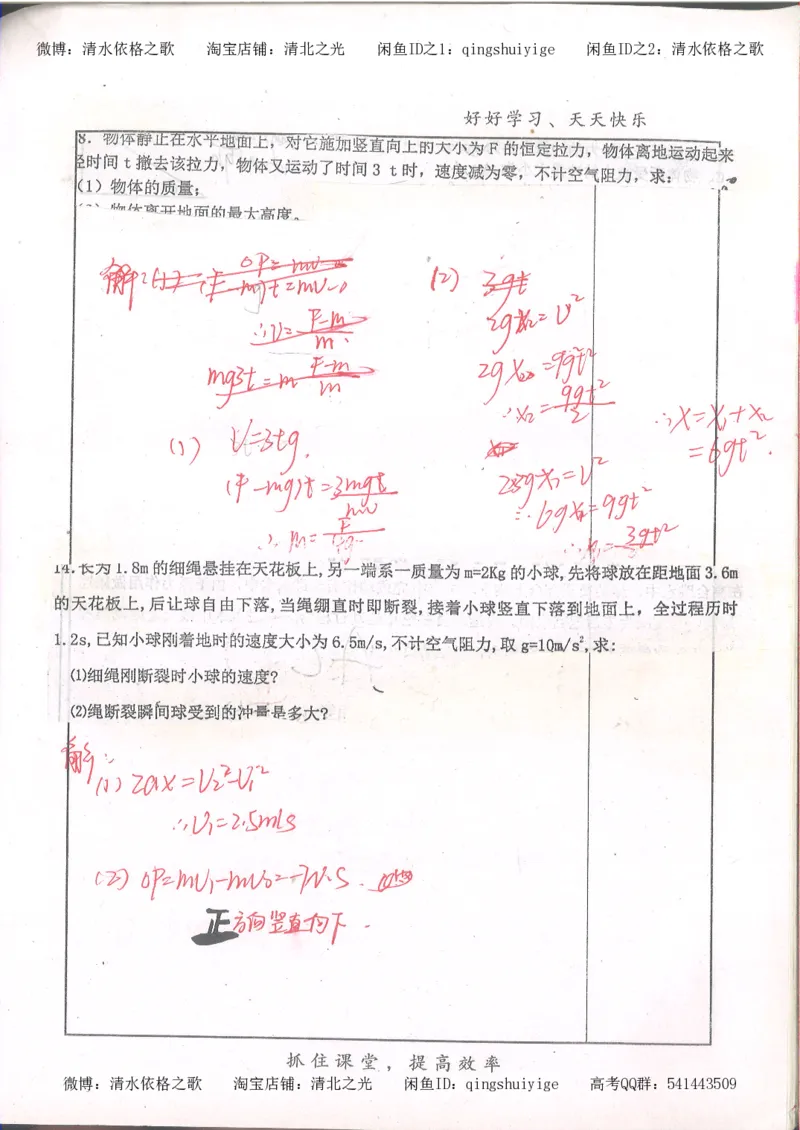 微博：清水依格之歌 淘宝店铺：清北之光 闲鱼ID之1：qingshuiyige 闲鱼ID之2：清水依格之歌
好好学习、天天快乐
8. 物体静止在水平地面上，对它施加竖直向上的大小为 F 的恒定拉力，物体离地运动起来
经时间 t 撤去该拉力，物体又运动了时间 3 t 时，速度减为零，不计空气阻力，求：
(1) 物体的质量；
物体离开地面的最大高度。
(F-mg)t=mv-0
∴v=F-m/m
mg3t=m F-m/m
(1) V=3tg.
(F-mg)t=3mgt
mv
∴m=F
(2) 3gt
2gx₂=V²
2gx₂=9gt²
∴x₂=9gt²/2
V²
∴6gx=9gt²
3gt²
∴x=x₁+x₂
=6gt².
14.长为 1.8m 的细绳悬挂在天花板上,另一端系一质量为 m=2Kg 的小球,先将球放在距地面 3.6m
的天花板上,后让球自由下落,当绳绷直时即断裂,接着小球竖直下落到地面上，全过程历时
1.2s,已知小球刚着地时的速度大小为 6.5m/s,不计空气阻力,取 g=10m/s²,求:
⑴细绳刚断裂时小球的速度?
⑵绳断裂瞬间球受到的冲量是多大?
解：
(1) 2ax=V₂²-V₁²
∴V₁=2.5m/s
(2) ΔP=mV₁-mV₀=-7N·S.
正方向竖直向下.
抓住课堂，提高效率
微博：清水依格之歌 淘宝店铺：清北之光 闲鱼ID：qingshuiyige 高考QQ群：541443509